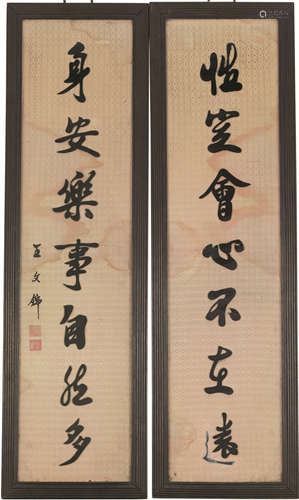 性定會心不在遠
身安樂事自然多
王文錦